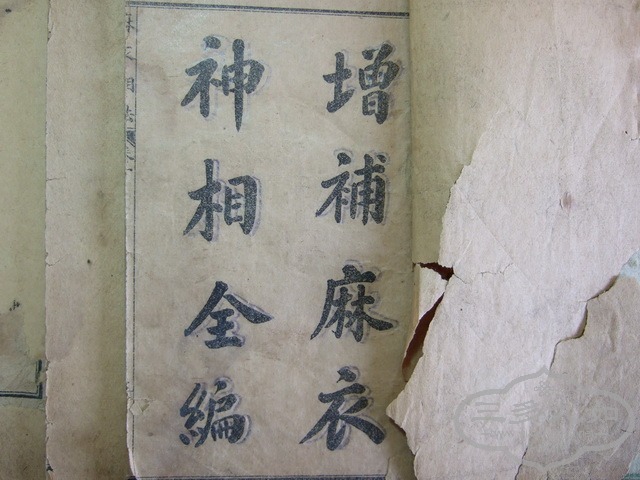 增補麻衣
神相全編